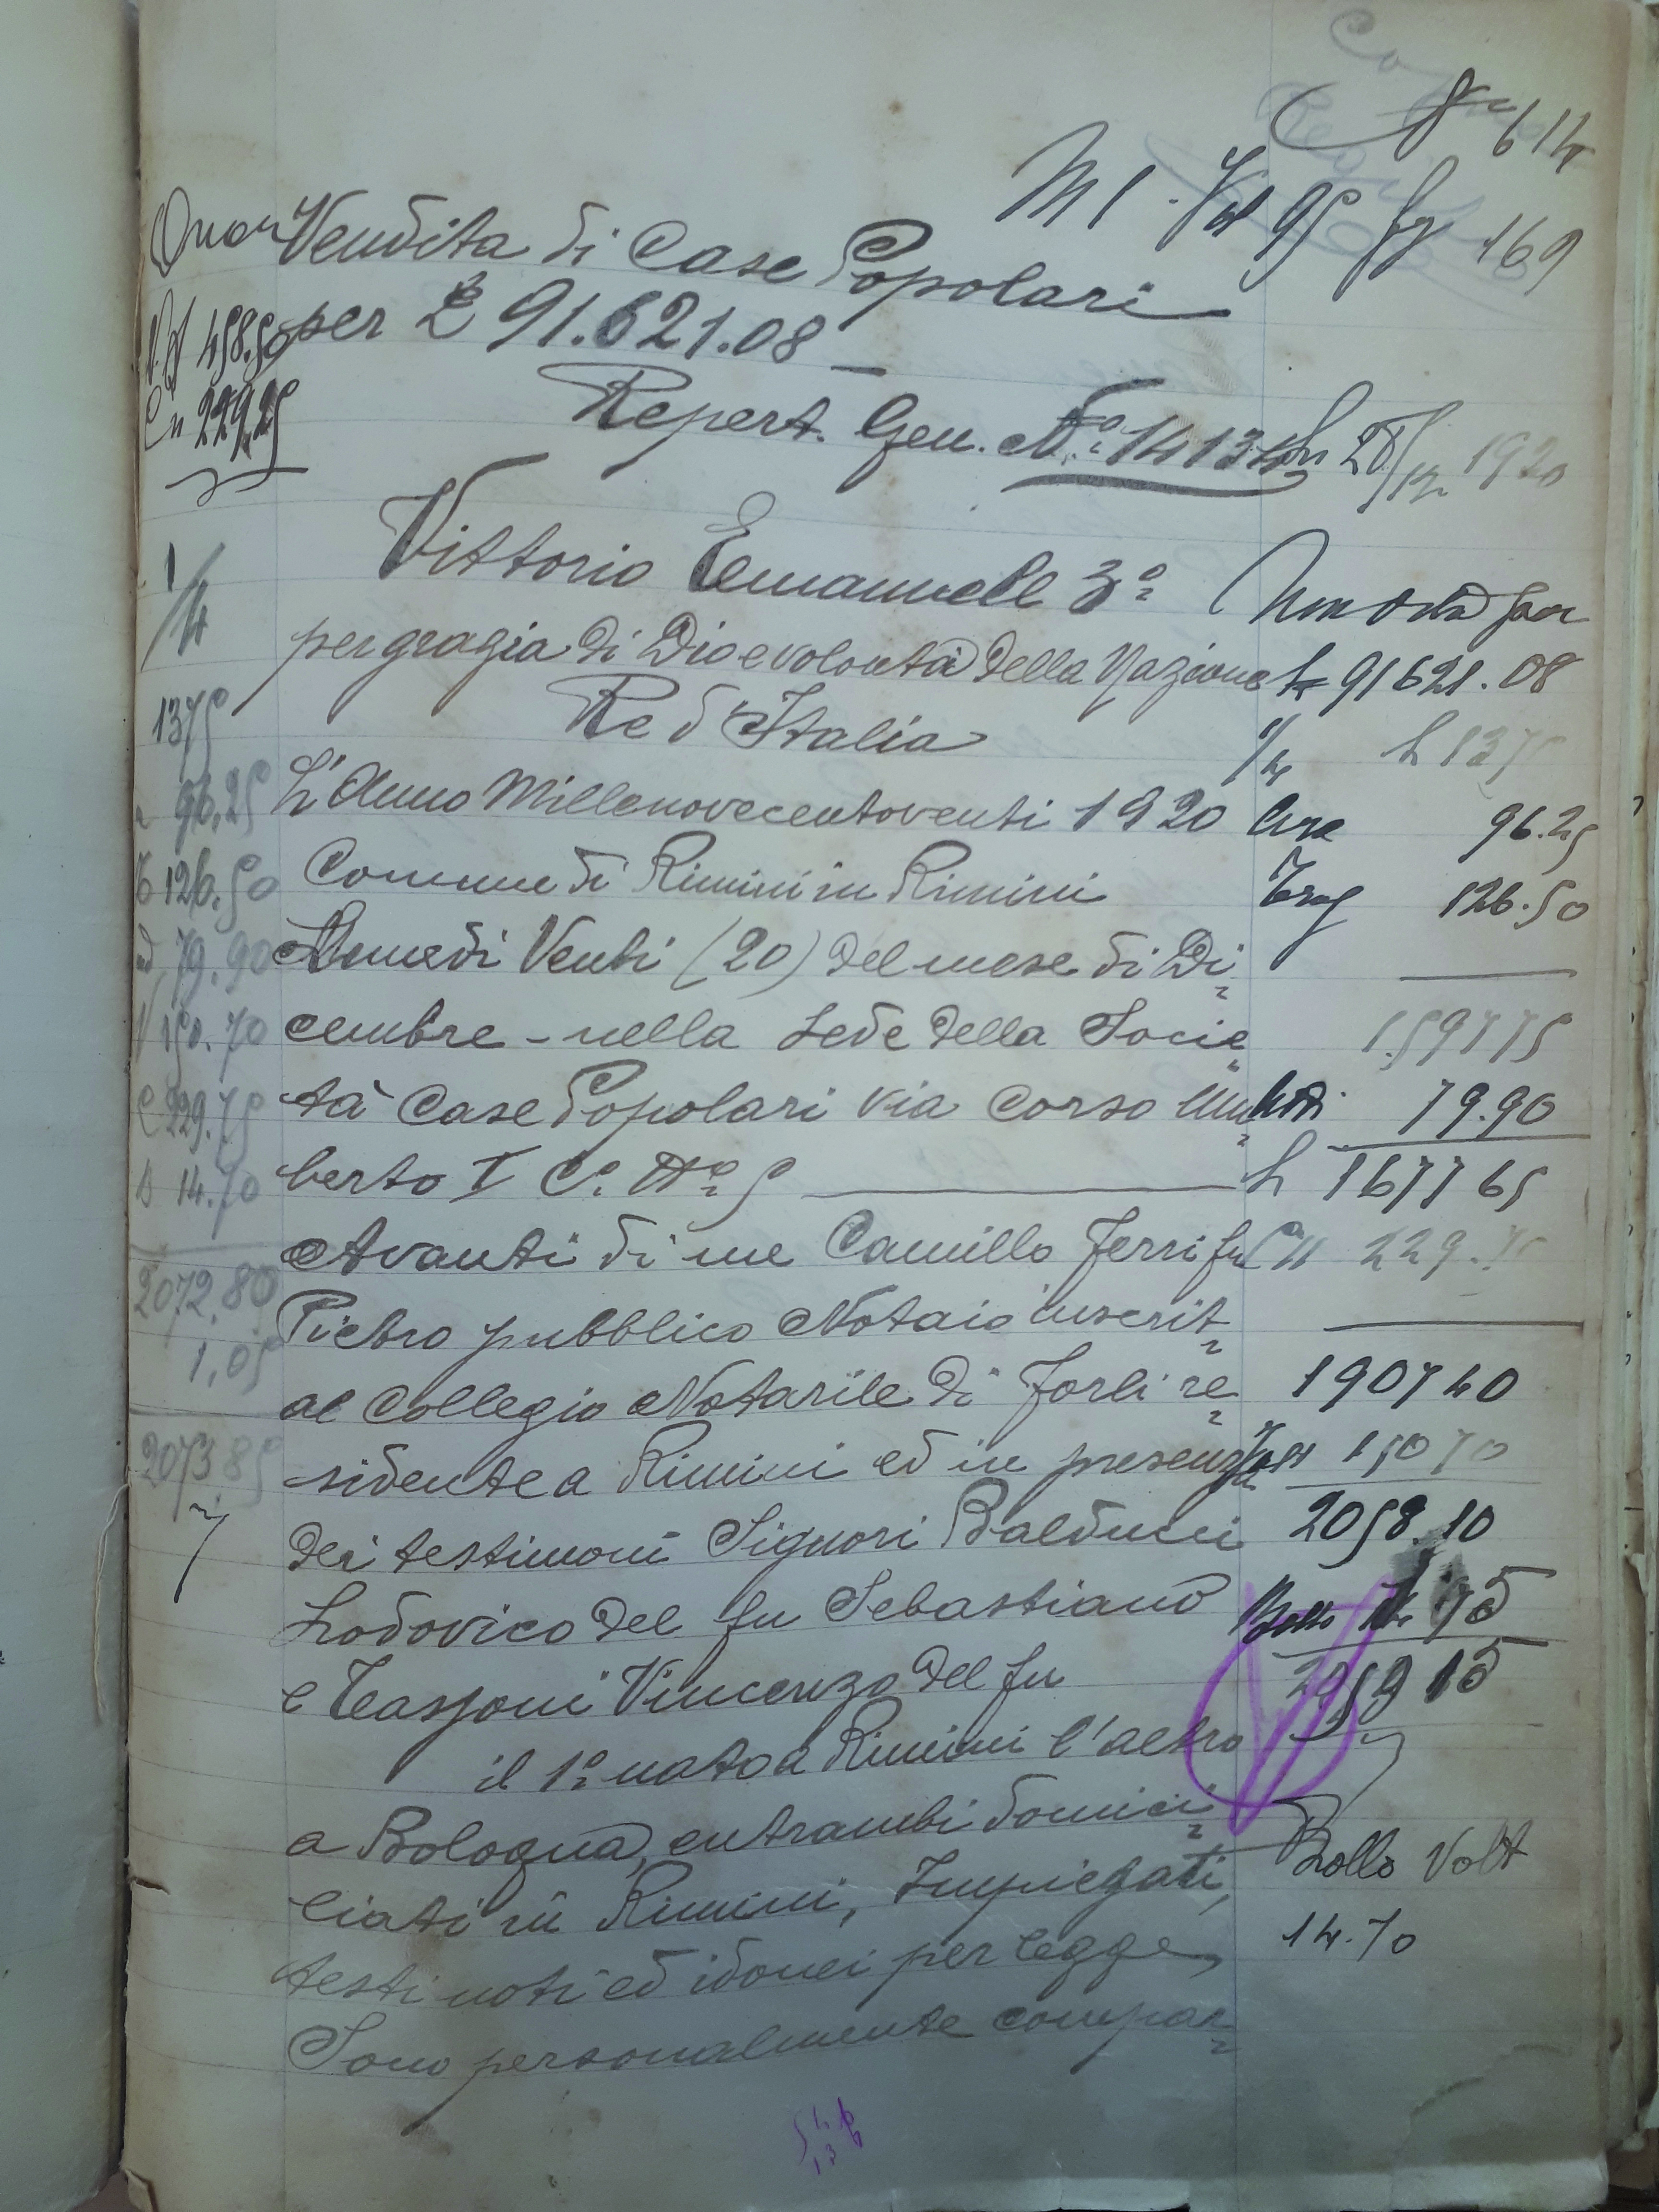 614
M 1 - Vol 95 fg 169
Vendita di Case Popolari
per £ 91.621.08
458.50
229.25
Repert. Gen. N.º 14134
28/12 1920
Vittorio Emanuele 3º
1/4
per grazia di Dio e volontà della Nazione
L 91621.08
Re d'Italia
1375
1/4 L 1375
L'Anno Millenovecentoventi 1920
96.25
96.25
Comune di Rimini in Rimini
126.50
Trag 126.50
Lunedi Venti (20) del mese di Di
79.90
cembre - nella Sede della Socie
150.70
1597 75
tà Case Popolari via Corso Um
229.75
79.90
berto I C. Nº 5
14.70
L 1677 65
Avanti di me Camillo Ferri fu
229.75
2072,80
Pietro pubblico Notaio inscrit
1,05
al Collegio Notarile di Forlì re
1907 40
sidente a Rimini ed in presenza
2073,85
150 70
dei testimoni Signori Balducci
2058.10
Lodovico del fu Sebastiano
Bollo
e Tassoni Vincenzo del fu
il 1º nato a Rimini l'altro
a Bologna, entrambi domici
Bollo Volt
liati in Rimini, Impiegati,
14.70
testi noti ed idonei per legge,
Sono personalmente compar